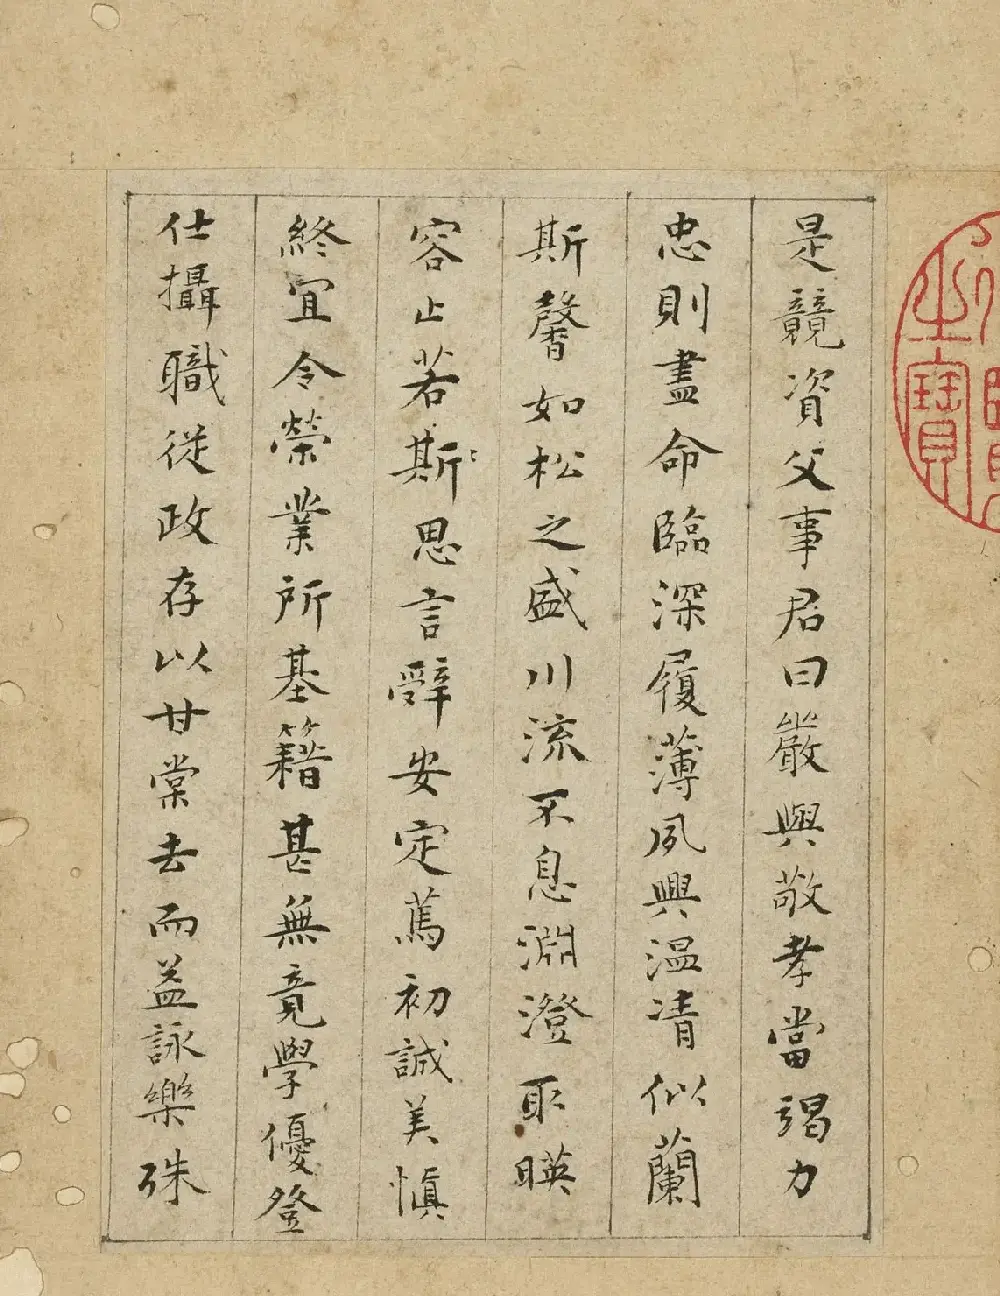 是競資父事君曰嚴與敬孝當竭力
忠則盡命臨深履薄夙興温凊似蘭
斯馨如松之盛川流不息淵澄取暎
容止若斯思言辭安定篤初誠美慎
終宜令榮業所基籍甚無竟學優登
仕攝職從政存以甘棠去而益詠樂殊
之寶